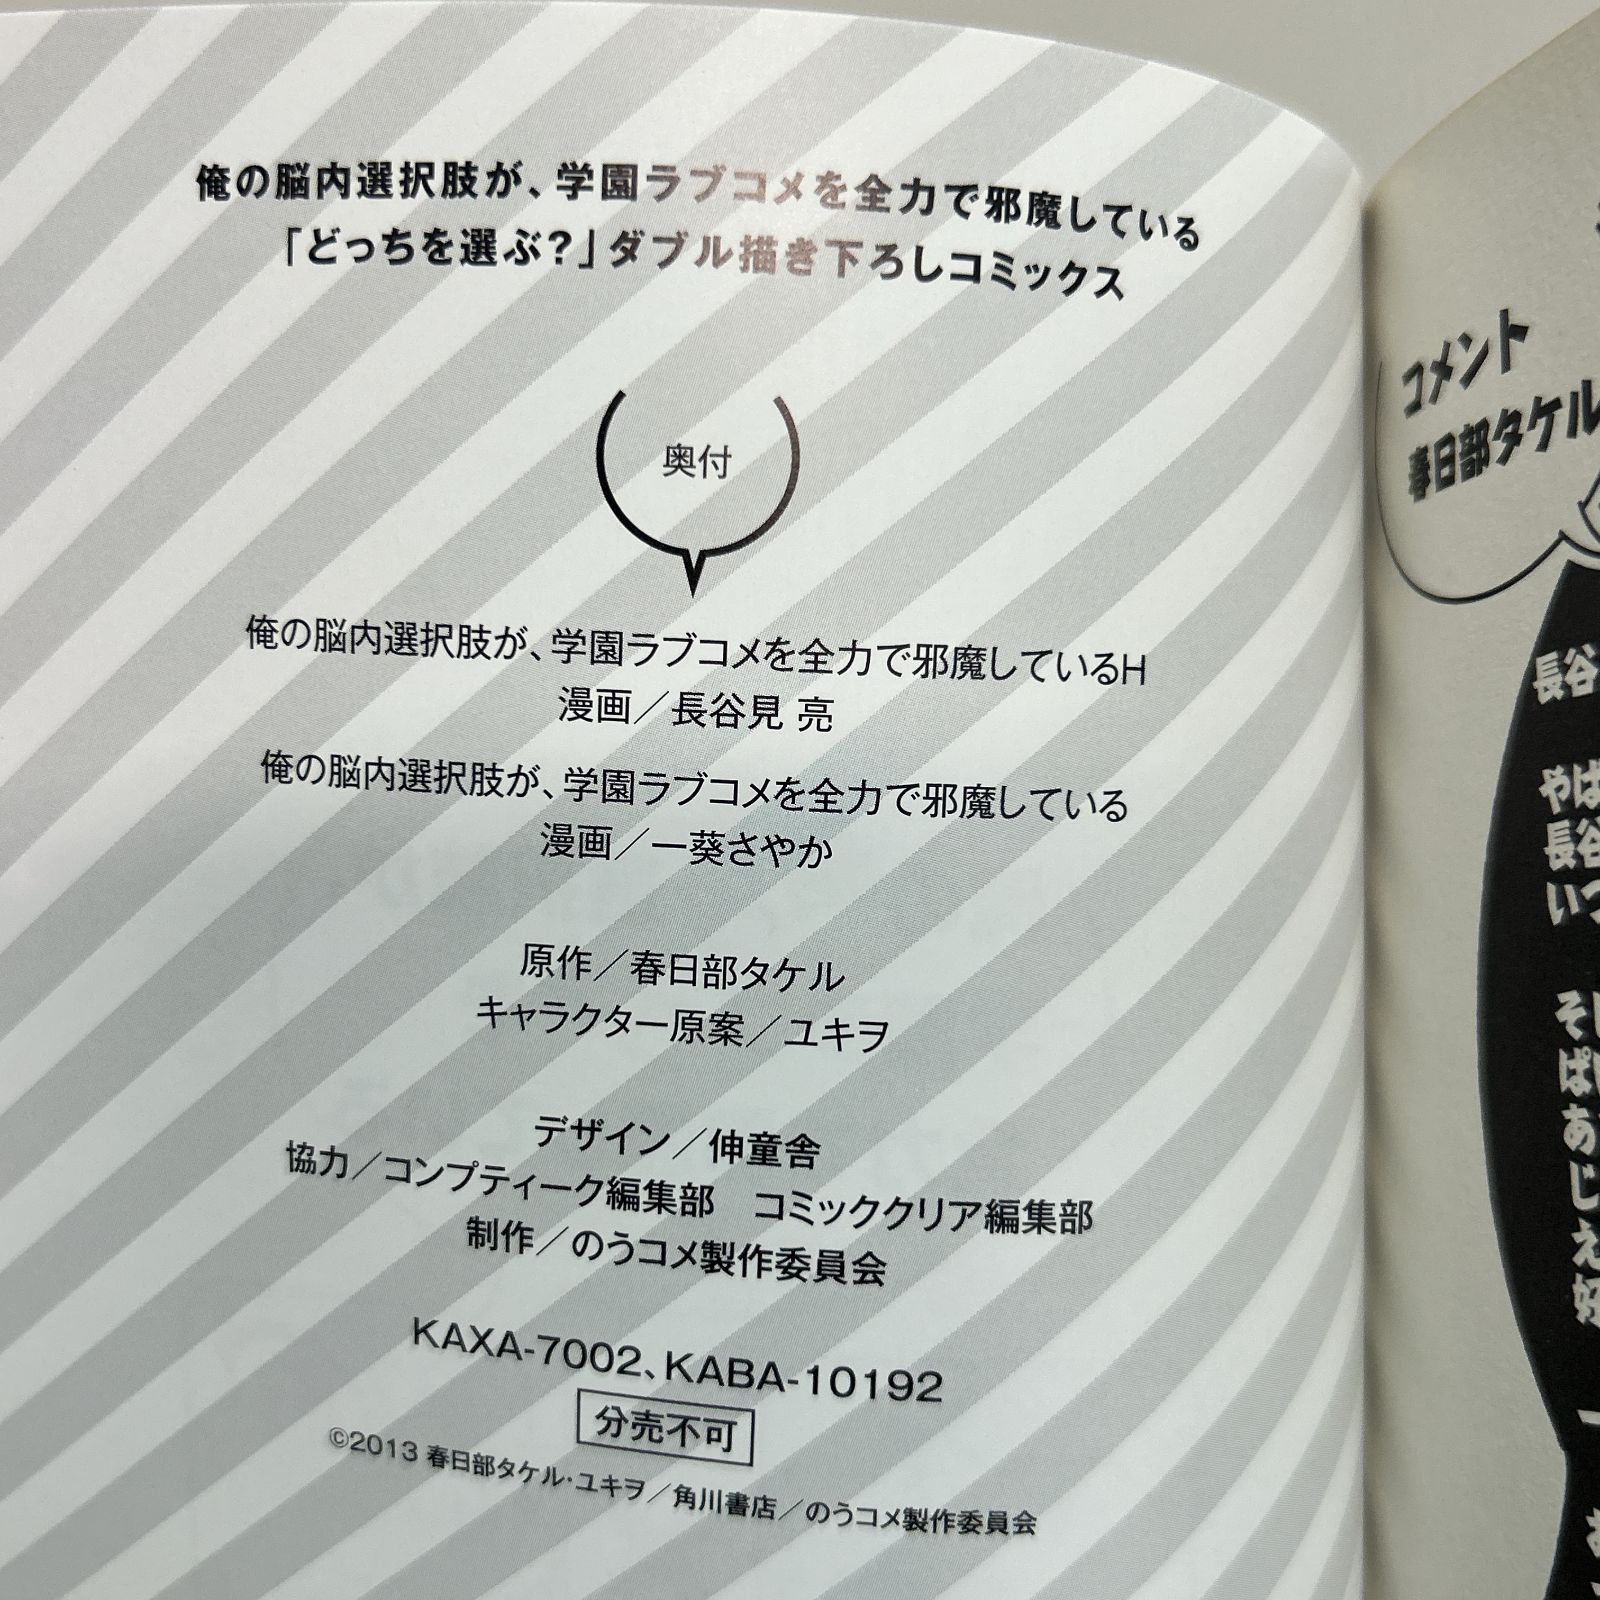 俺の脳内選択肢が、学園ラブコメを全力で邪魔している
「どっちを選ぶ?」ダブル描き下ろしコミックス
奥付
俺の脳内選択肢が、学園ラブコメを全力で邪魔しているH
漫画／長谷見 亮
俺の脳内選択肢が、学園ラブコメを全力で邪魔している
漫画／一葵さやか
原作／春日部タケル
キャラクター原案／ユキヲ
デザイン／伸童舎
協力／コンプティーク編集部　コミッククリア編集部
制作／のうコメ製作委員会
KAXA-7002、KABA-10192
分売不可
©2013 春日部タケル・ユキヲ／角川書店／のうコメ製作委員会
コメント
春日部タケル
長谷
やは
長谷
いつ
ぱ
あ
じ
え
好